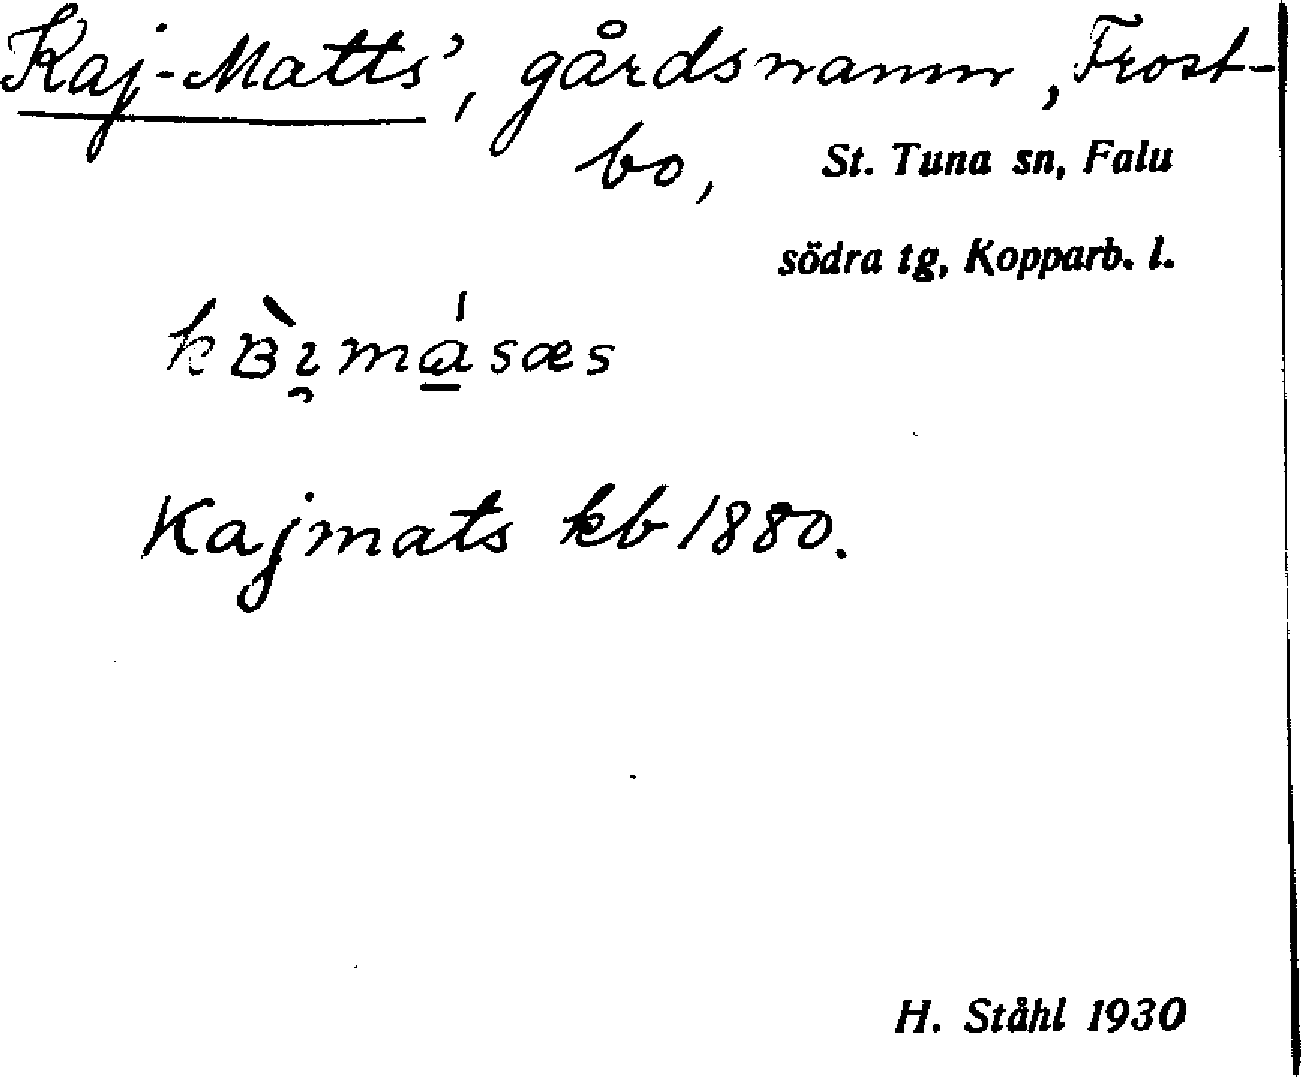 Kaj-Matts', gårdsnamn, Frost-
bo, St. Tuna sn, Falu
södra tg, Kopparb. l.
Kajmats kb 1880.
H. Ståhl 1930